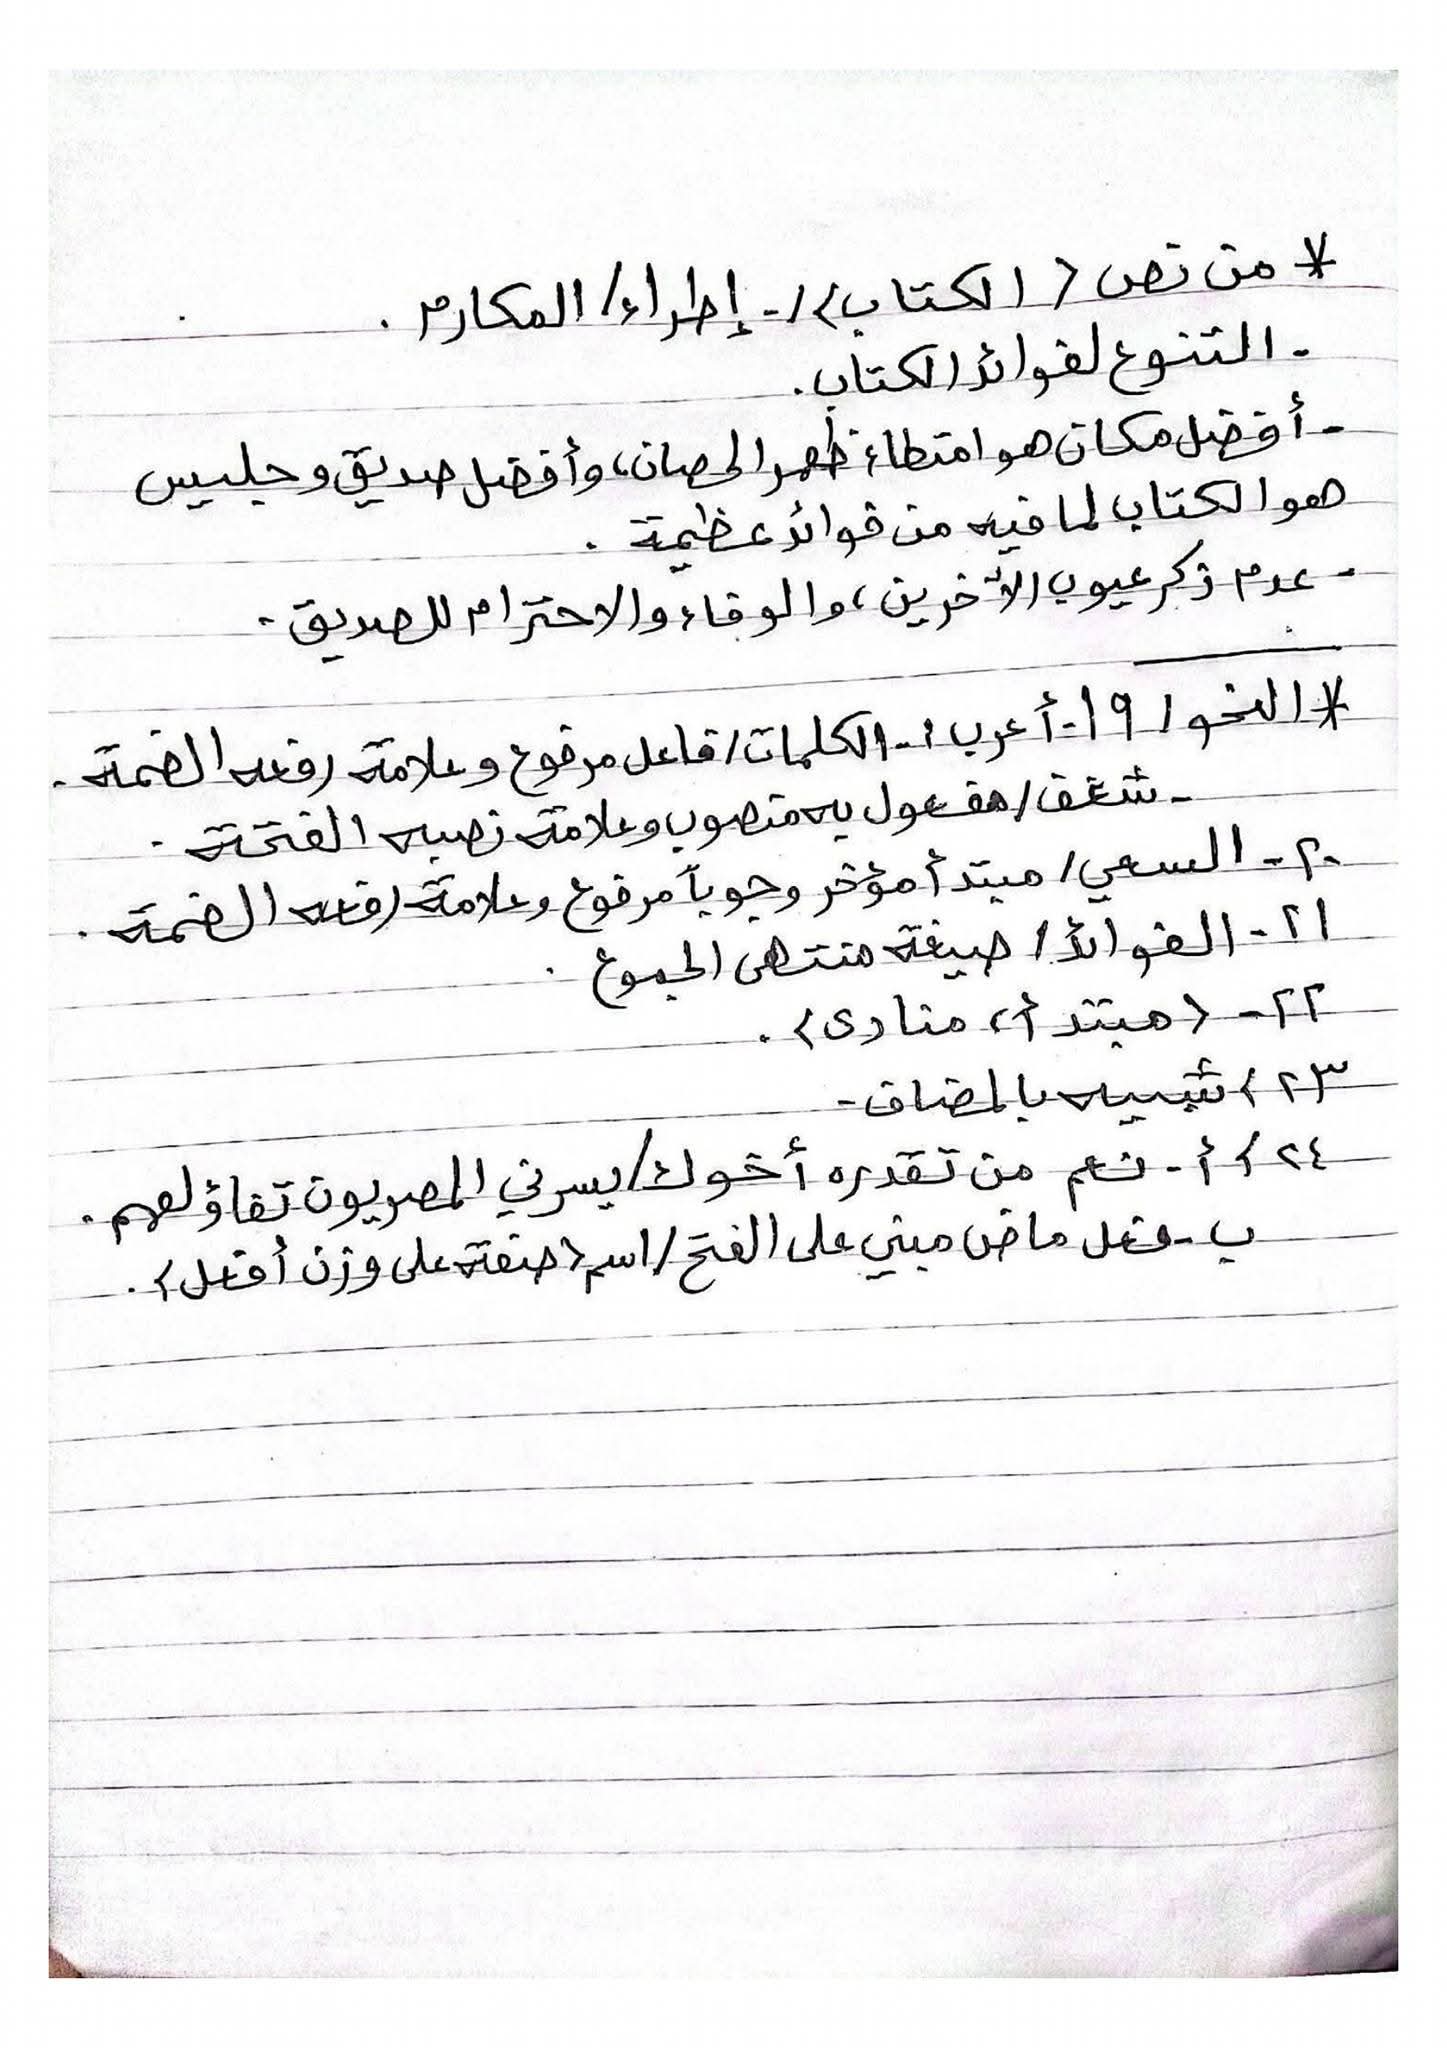 * من نص (الكتاب)/- إطراء/ المكارم .
- التنوع لفوائد الكتاب.
- أفضل مكان هو امتطاء ظهر الحصان، وأفضل صديق وجليس
هو الكتاب لما فيه من فوائد عظيمة .
- عدم ذكر عيوب الآخرين، والوفاء والاحترام للصديق .
* النحو / ١٩- أعرب :- الكلمات/ فاعل مرفوع وعلامة رفعه الضمة .
- شغف/ مفعول به منصوب وعلامة نصبه الفتحة .
٢٠- السعي/ مبتدأ مؤخر وجوباً مرفوع وعلامة رفعه الضمة .
٢١- الفوائد/ صيغة منتهى الجموع .
٢٢- (مبتدأ، منادى) .
٢٣) شبيه بالمضاف -
٢٤) أ- نعم من تقدره أخوك/ يسرني المصريون تفاؤلهم .
ب- فعل ماض مبني على الفتح/ اسم (صفة على وزن أفعل) .